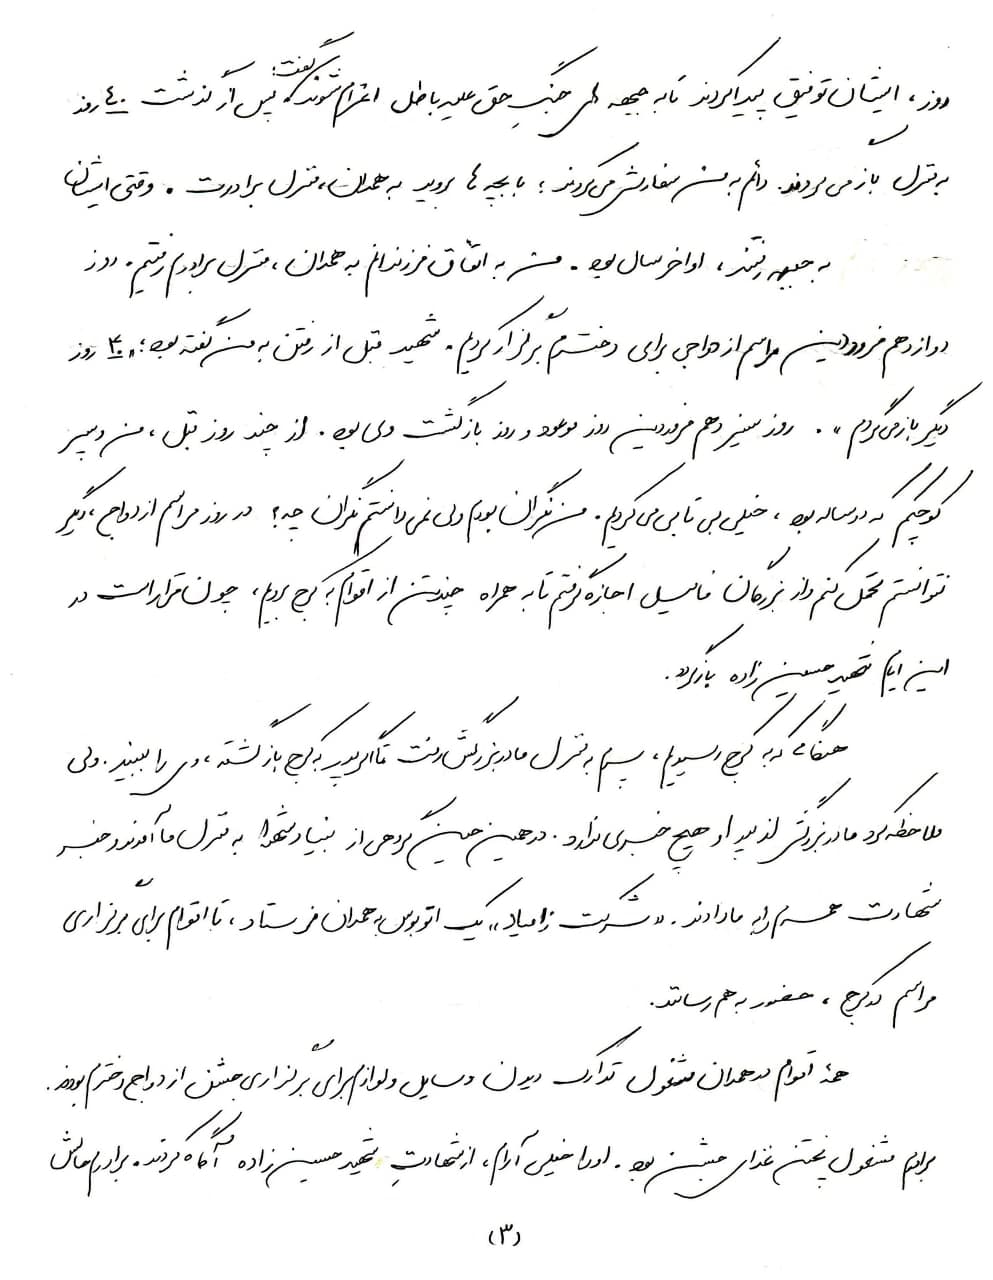 روز، ایشان توفیق پیدا کردند تا به جبهه های جنگِ حق علیه باطل اعزام شوند. گفت: پس از گذشت ۴۰ روز
به منزل باز می گردند. دائم به من سفارش می کردند؛ با بچه ها بروید به همدان، منزل برادرت. وقتی ایشان
به جبهه رفتند، اواخر سال بود. من به اتفاق فرزندانم به همدان، منزل برادرم رفتیم. روز
دوازدهم فروردین مراسم ازدواجی برای دخترم برگزار کردیم. شهید قبل از رفتن به من گفته بود؛ «۴۰ روز
دیگر باز می گردم». روز سیزدهم فروردین روز موعود و روز بازگشت وی بود. از چند روز قبل، من و پسر
کوچکم که دو ساله بود، خیلی بی تابی می کردیم. من نگران بودم ولی نمی دانستم نگران چه؟ در روز مراسم ازدواج، دیگر
نتوانستم تحمل کنم و از بزرگان فامیل اجازه گرفتم تا به همراه چند تن از اقوام به کرج برویم، چون قرار است در
این ایام شهید حسین زاده بازگردد.
هنگامی که به کرج رسیدیم، پسرم به منزل مادربزرگش رفت تا اگر پدر به کرج بازگشته، وی را ببیند. ولی
ملاحظه کرد مادربزرگش از پدر او هیچ خبری ندارد. در همین حین گروهی از بنیاد شهدا به منزل ما آمدند و خبر
شهادت همسرم را به ما دادند. «شرکت زامیاد» یک اتوبوس به همدان فرستاد، تا اقوام برای برگزاری
مراسم در کرج، حضور به هم رسانند.
همهٔ اقوام در همدان مشغول تدارک دیدن وسایل و لوازم برای برگزاری جشن ازدواج دخترم بودند.
برادرم مشغول پختن غذای جشن بود. او را خیلی آرام، از شهادتِ شهید حسین زاده آگاه کردند. برادرم حالش
(۳)